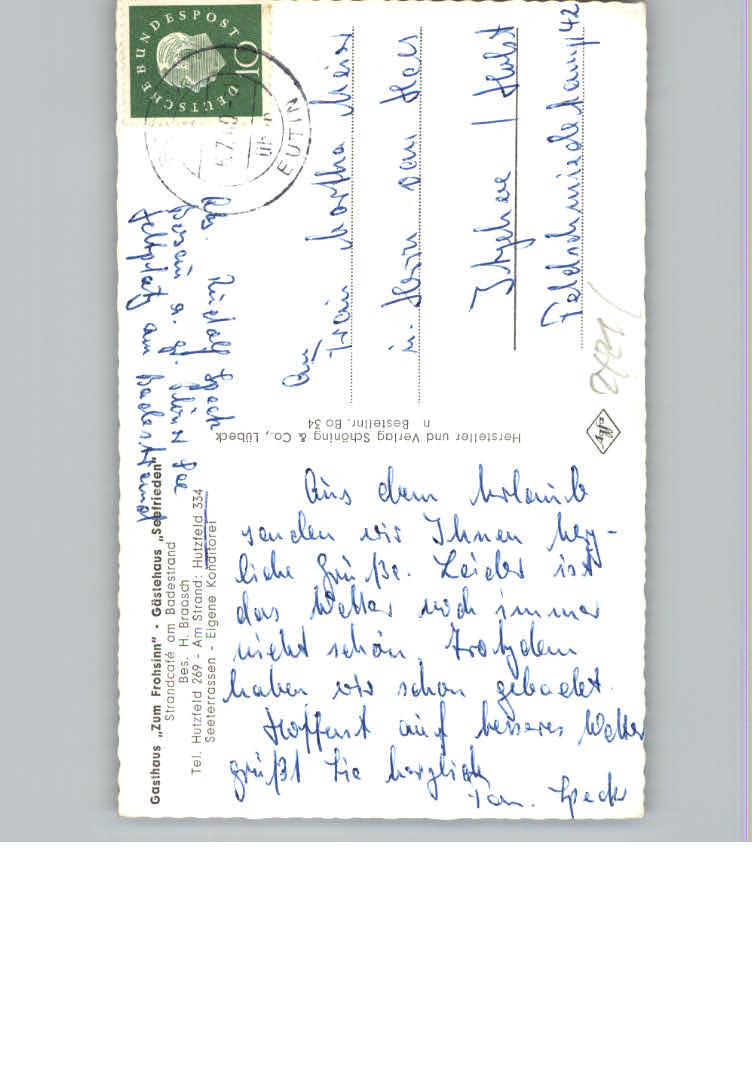 Gasthaus „Zum Frohsinn" · Gästehaus „Seefrieden"
Strandcafé am Badestrand
Bes. H. Braasch
Tel. Hutzfeld 269 - Am Strand: Hutzfeld 334
Seeterrassen - Eigene Konditorei
Abs. Rudolf Speck
Bosau a. gr. Plöner See
Zeltplatz am Badestrand
Aus dem Urlaub
senden wir Ihnen herz-
liche Grüße. Leider ist
das Wetter noch immer
nicht schön. Trotzdem
haben wir schon gebadet.
Hoffend auf besseres Wetter
grüßt Sie herzlich
Fam. Speck
Hersteller und Verlag Schöning & Co., Lübeck
n Bestellnr. Bo 34
agfa
DEUTSCHE BUNDESPOST
10
EUTIN
An
Frau Martha Meier
u. Herrn van Hees
Itzehoe / Holst
Feldschmiedekamp 42